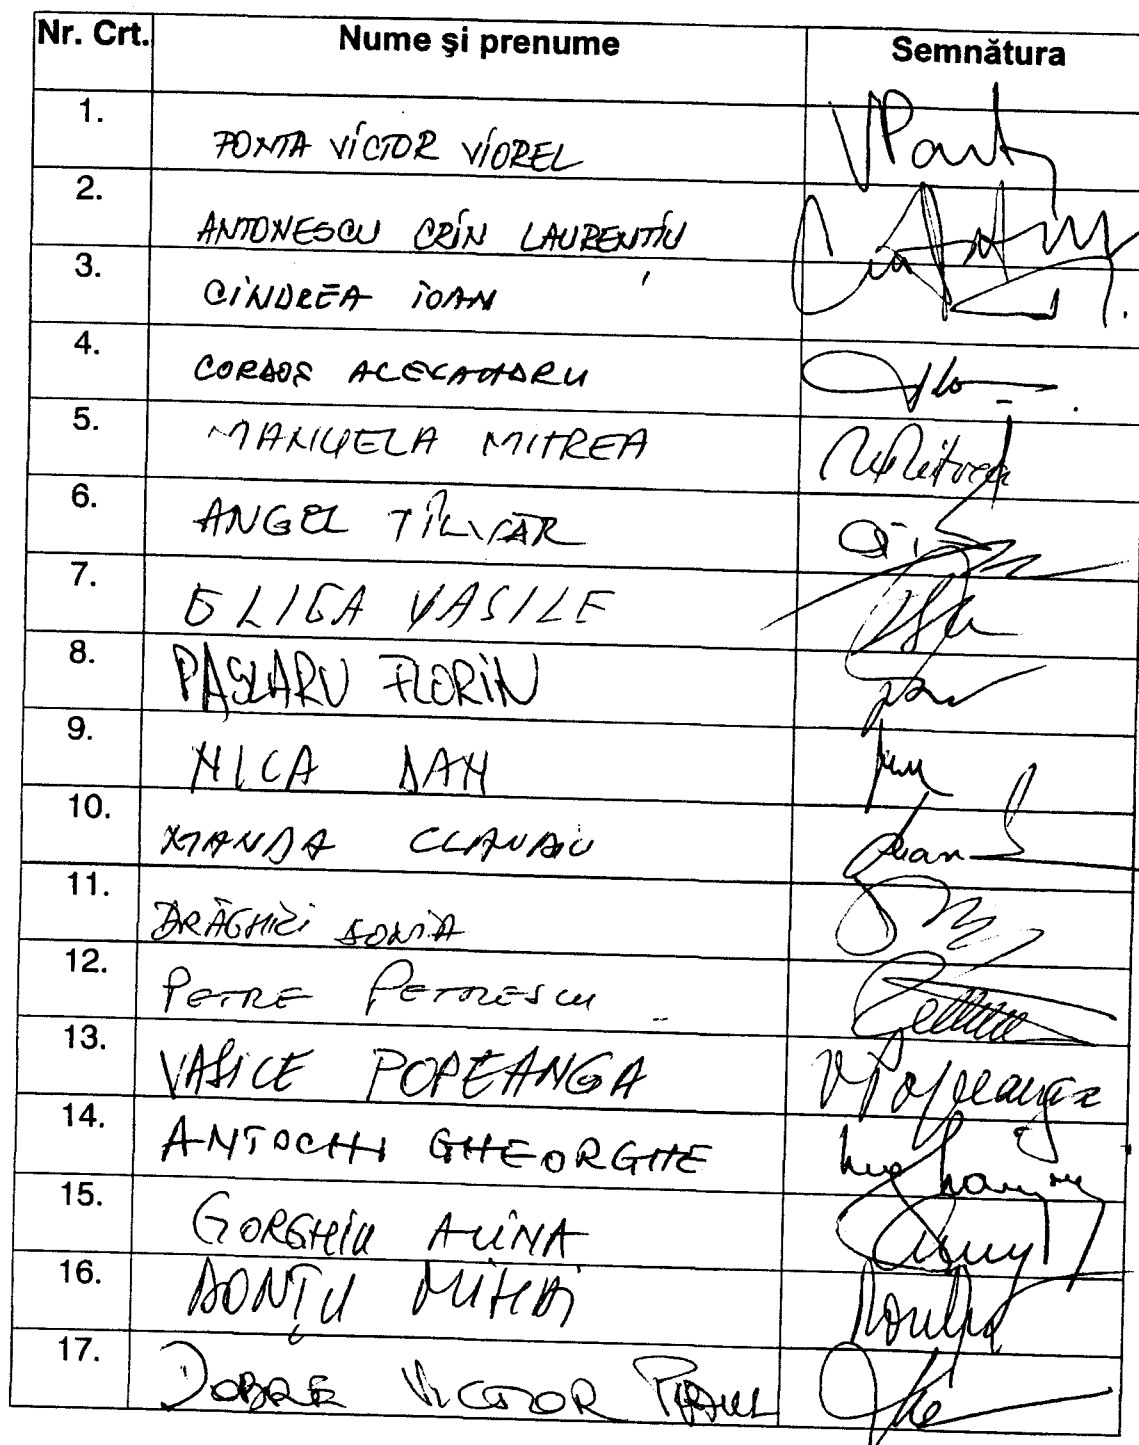 Nr. Crt. Nume și prenume Semnătura
1. PONTA VICTOR VIOREL
2. ANTONESCU CRIN LAURENȚIU
3. CINDREA IOAN
4. CORDOȘ ALEXANDRU
5. MANUELA MITREA
6. ANGEL TÎLVĂR
7. GLIGA VASILE
8. PÂSLARU FLORIN
9. NICA DAN
10. MANDA CLAUDIU
11. DRĂGHICI SONIA
12. PETRE PETRESCU
13. VASILE POPEANGA VPopeanga
14. ANTOCHI GHEORGHE
15. GORGHIU ALINA
16. DONȚU MIHAI
17. DOBRE VICTOR PAUL